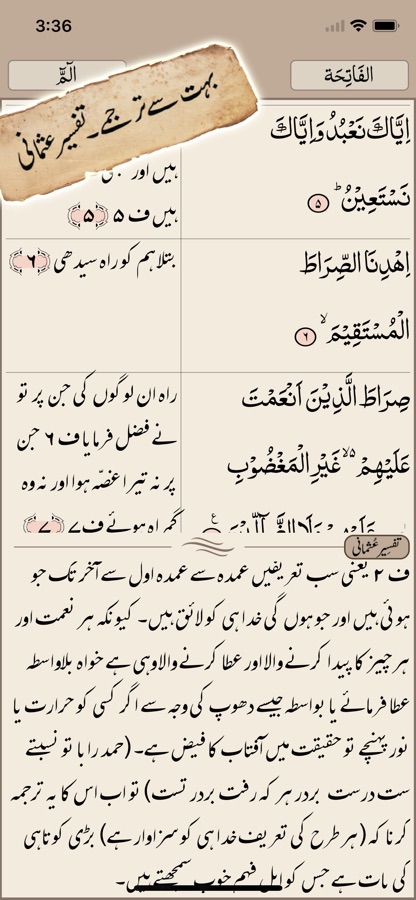 3:36
الٓمّٓ
الفَاتِحَة
بہت سے ترجمے۔ تفسیر عثمانی
اِيَّاكَ نَعْبُدُ وَاِيَّاكَ
نَسْتَعِيْنُ ؕ ۵
ہیں اور
ہیں ف ۵ ﴿۵﴾
اِهْدِنَا الصِّرَاطَ
الْمُسْتَقِيْمَ ۙ ۶
بتلا ہم کو راہ سیدھی ﴿۶﴾
صِرَاطَ الَّذِيْنَ اَنْعَمْتَ
عَلَيْهِمْ ۙ۬ۦ غَيْرِ الْمَغْضُوْبِ
راہ ان لوگوں کی جن پر تو
نے فضل فرمایا ف ۶ جن
پر نہ تیرا غصہ ہوا اور نہ وہ
گمراہ ہوئے ف ۷ ﴿۷﴾
تفسیرِ عثمانی
ف ۲ یعنی سب تعریفیں عمدہ سے عمدہ اول سے آخر تک جو
ہوئی ہیں اور جو ہوں گی خدا ہی کو لائق ہیں۔ کیونکہ ہر نعمت اور
ہر چیز کا پیدا کرنے والا اور عطا کرنے والا وہی ہے خواہ بلاواسطہ
عطا فرمائے یا بواسطہ جیسے دھوپ کی وجہ سے اگر کسی کو حرارت یا
نور پہنچے تو حقیقت میں آفتاب کا فیض ہے۔ (حمد را با تو نسبتے
ست درست بر در ہر کہ رفت بر در تست) تو اب اس کا یہ ترجمہ
کرنا کہ (ہر طرح کی تعریف خدا ہی کو سزاوار ہے) بڑی کوتاہی
کی بات ہے جس کو اہل فہم خوب سمجھتے ہیں۔